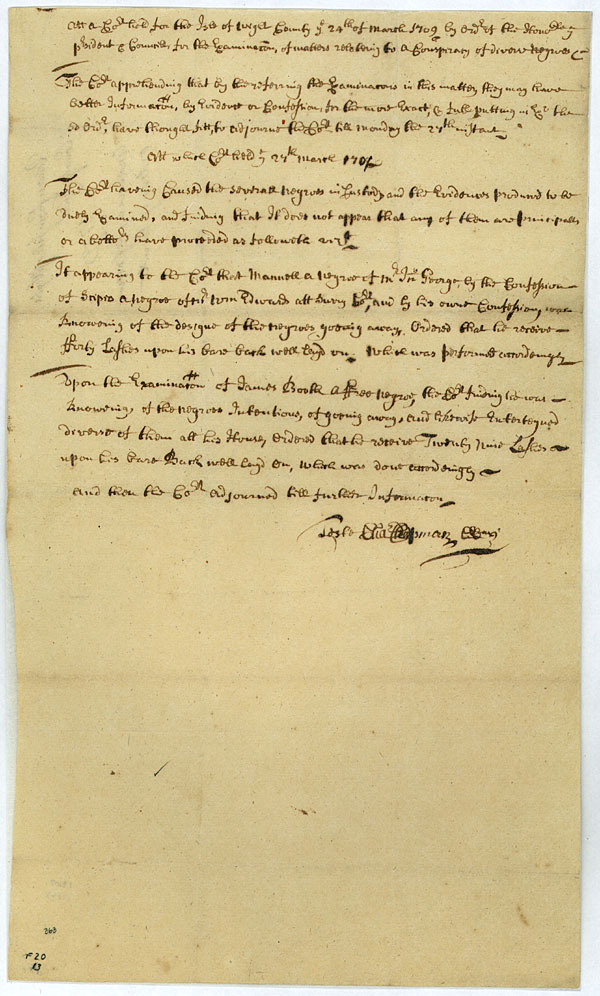 Att a Cort held for the Isle of Wight County ye 24th of March 1709 by Ordr of the Honble
Prsident & Councill for the Examinacon, of matters relateing to a Conspiracy of diverse Negroes
The Cort apprehending that by the referring the Examinacons in this matter they may have
better Informacon, by Evidence or Confession, for the more Exact, & full putting in Ex the
sd Ordr, have thought fitt, to Adjourne the Cort till Monday the 27th instant
Att which Cort held ye 27th March 170
The Cort haveing Caused the severall Negroes in Custody and the Evidences produced to be
duely Examined, and finding that It does not appear that any of them are principalls
or abettors have proceeded as followeth vizt
It appearing to the Cort that Mannell a Negroe of Mr Jno George, by the Confession
of Scipio a Negroe of Mr Wm Edwards att Surry Cort, and by his owne Confession, was
Knoweing of the designe of the Negroes goeing away, Ordered that he receive
fforty Lashes upon his bare back well layd on, which was performed accordingly
Upon the Examinacon of James Booth a ffree Negroe, the Cort finding he was
Knoweing, of the Negroes Intentions, of goeing away, and likewise Entertayned
diverse of them att his House, Ordered that he receive Twenty Nine Lashes
upon his bare Back well layd on, which was done accordingly
And then the Cort Adjourned till further Informacon
Teste Chapman
263
F20
23